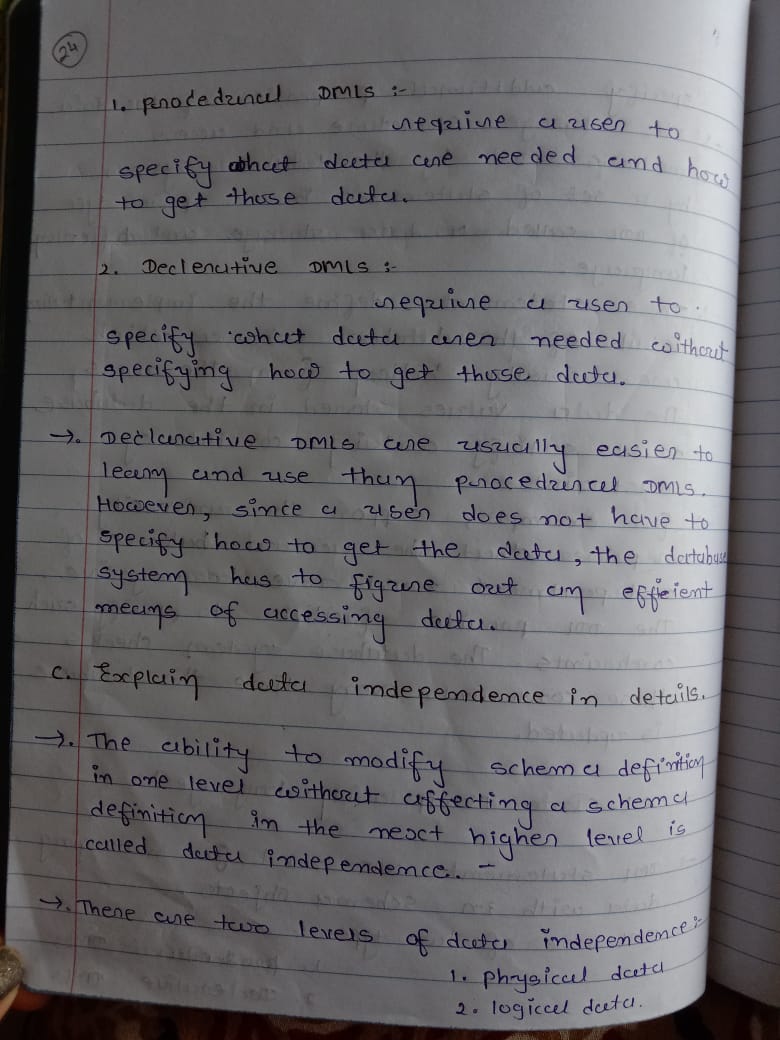 24
1. procedural DMLs :-
require a user to
specify what data are needed and how
to get those data.
2. Declerative DMLs :-
require a user to.
specify what data aren needed without
specifying how to get those data.
→. Declarative DMLs are usually easier to
learn and use than procedural DMLs.
However, since a user does not have to
specify how to get the data, the database
system has to figure out an effieient
means of accessing data.
c. Explain data independence in details.
→. The ability to modify schema definition
in one level without affecting a schema
definition in the next higher level is
called data independence. -
→. There are two levels of data independence :-
1. physical data
2. logical data.